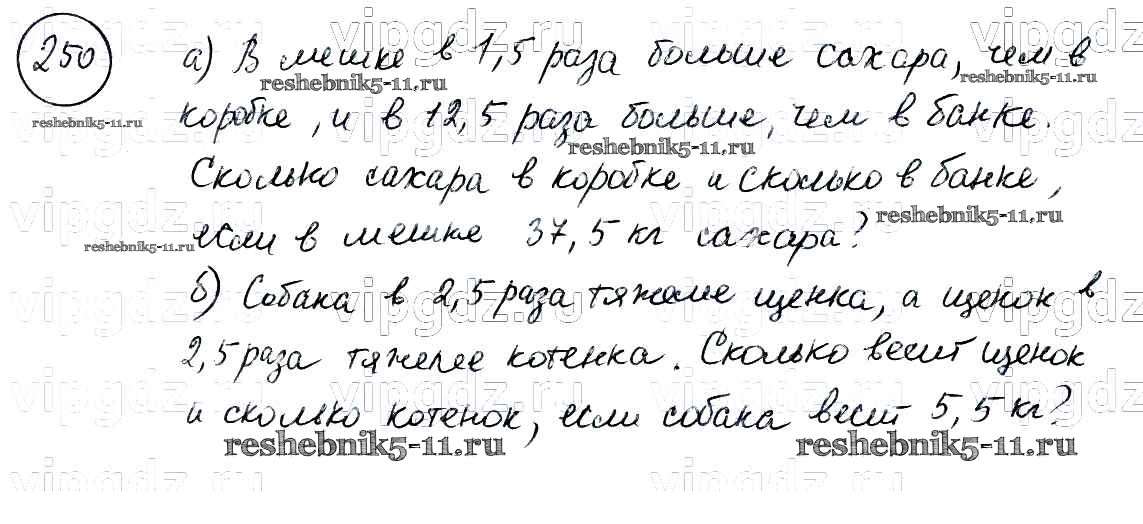 250 а) В мешке в 1,5 раза больше сахара, чем в
коробке, и в 12,5 раза больше, чем в банке.
Сколько сахара в коробке и сколько в банке,
если в мешке 37,5 кг сахара?
б) Собака в 2,5 раза тяжелее щенка, а щенок в
2,5 раза тяжелее котенка. Сколько весит щенок
и сколько котенок, если собака весит 5,5 кг?
vipgdz.ru vipgdz.ru vipgdz.ru
reshebnik5-11.ru
reshebnik5-11.ru
reshebnik5-11.ru
reshebnik5-11.ru
reshebnik5-11.ru
reshebnik5-11.ru reshebnik5-11.ru